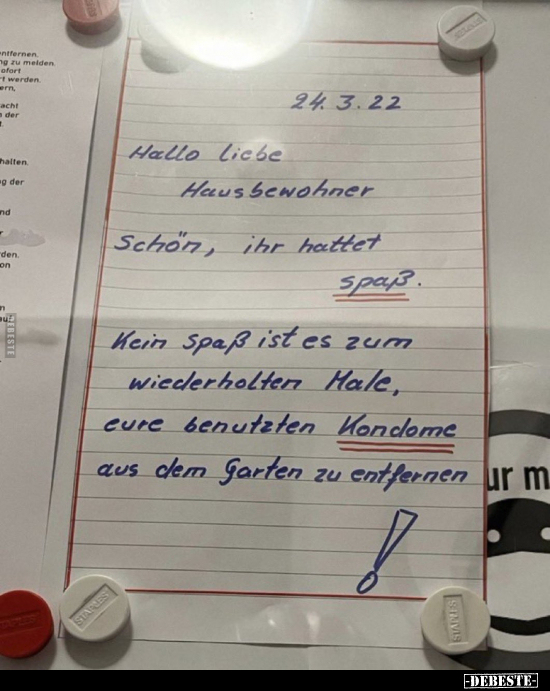 ntfernen.
ng zu melden
ofort
t werden.
ern,
acht
der
halten.
g der
nd
den.
on
24. 3. 22
Hallo liebe
Hausbewohner
Schön, ihr hattet
spaß.
Kein Spaß ist es zum
wiederholten Male,
eure benutzten Kondome
aus dem Garten zu entfernen
!
ur m
STAPLES
STAPLES
STAPLES
DEBESTE
-DEBESTE-